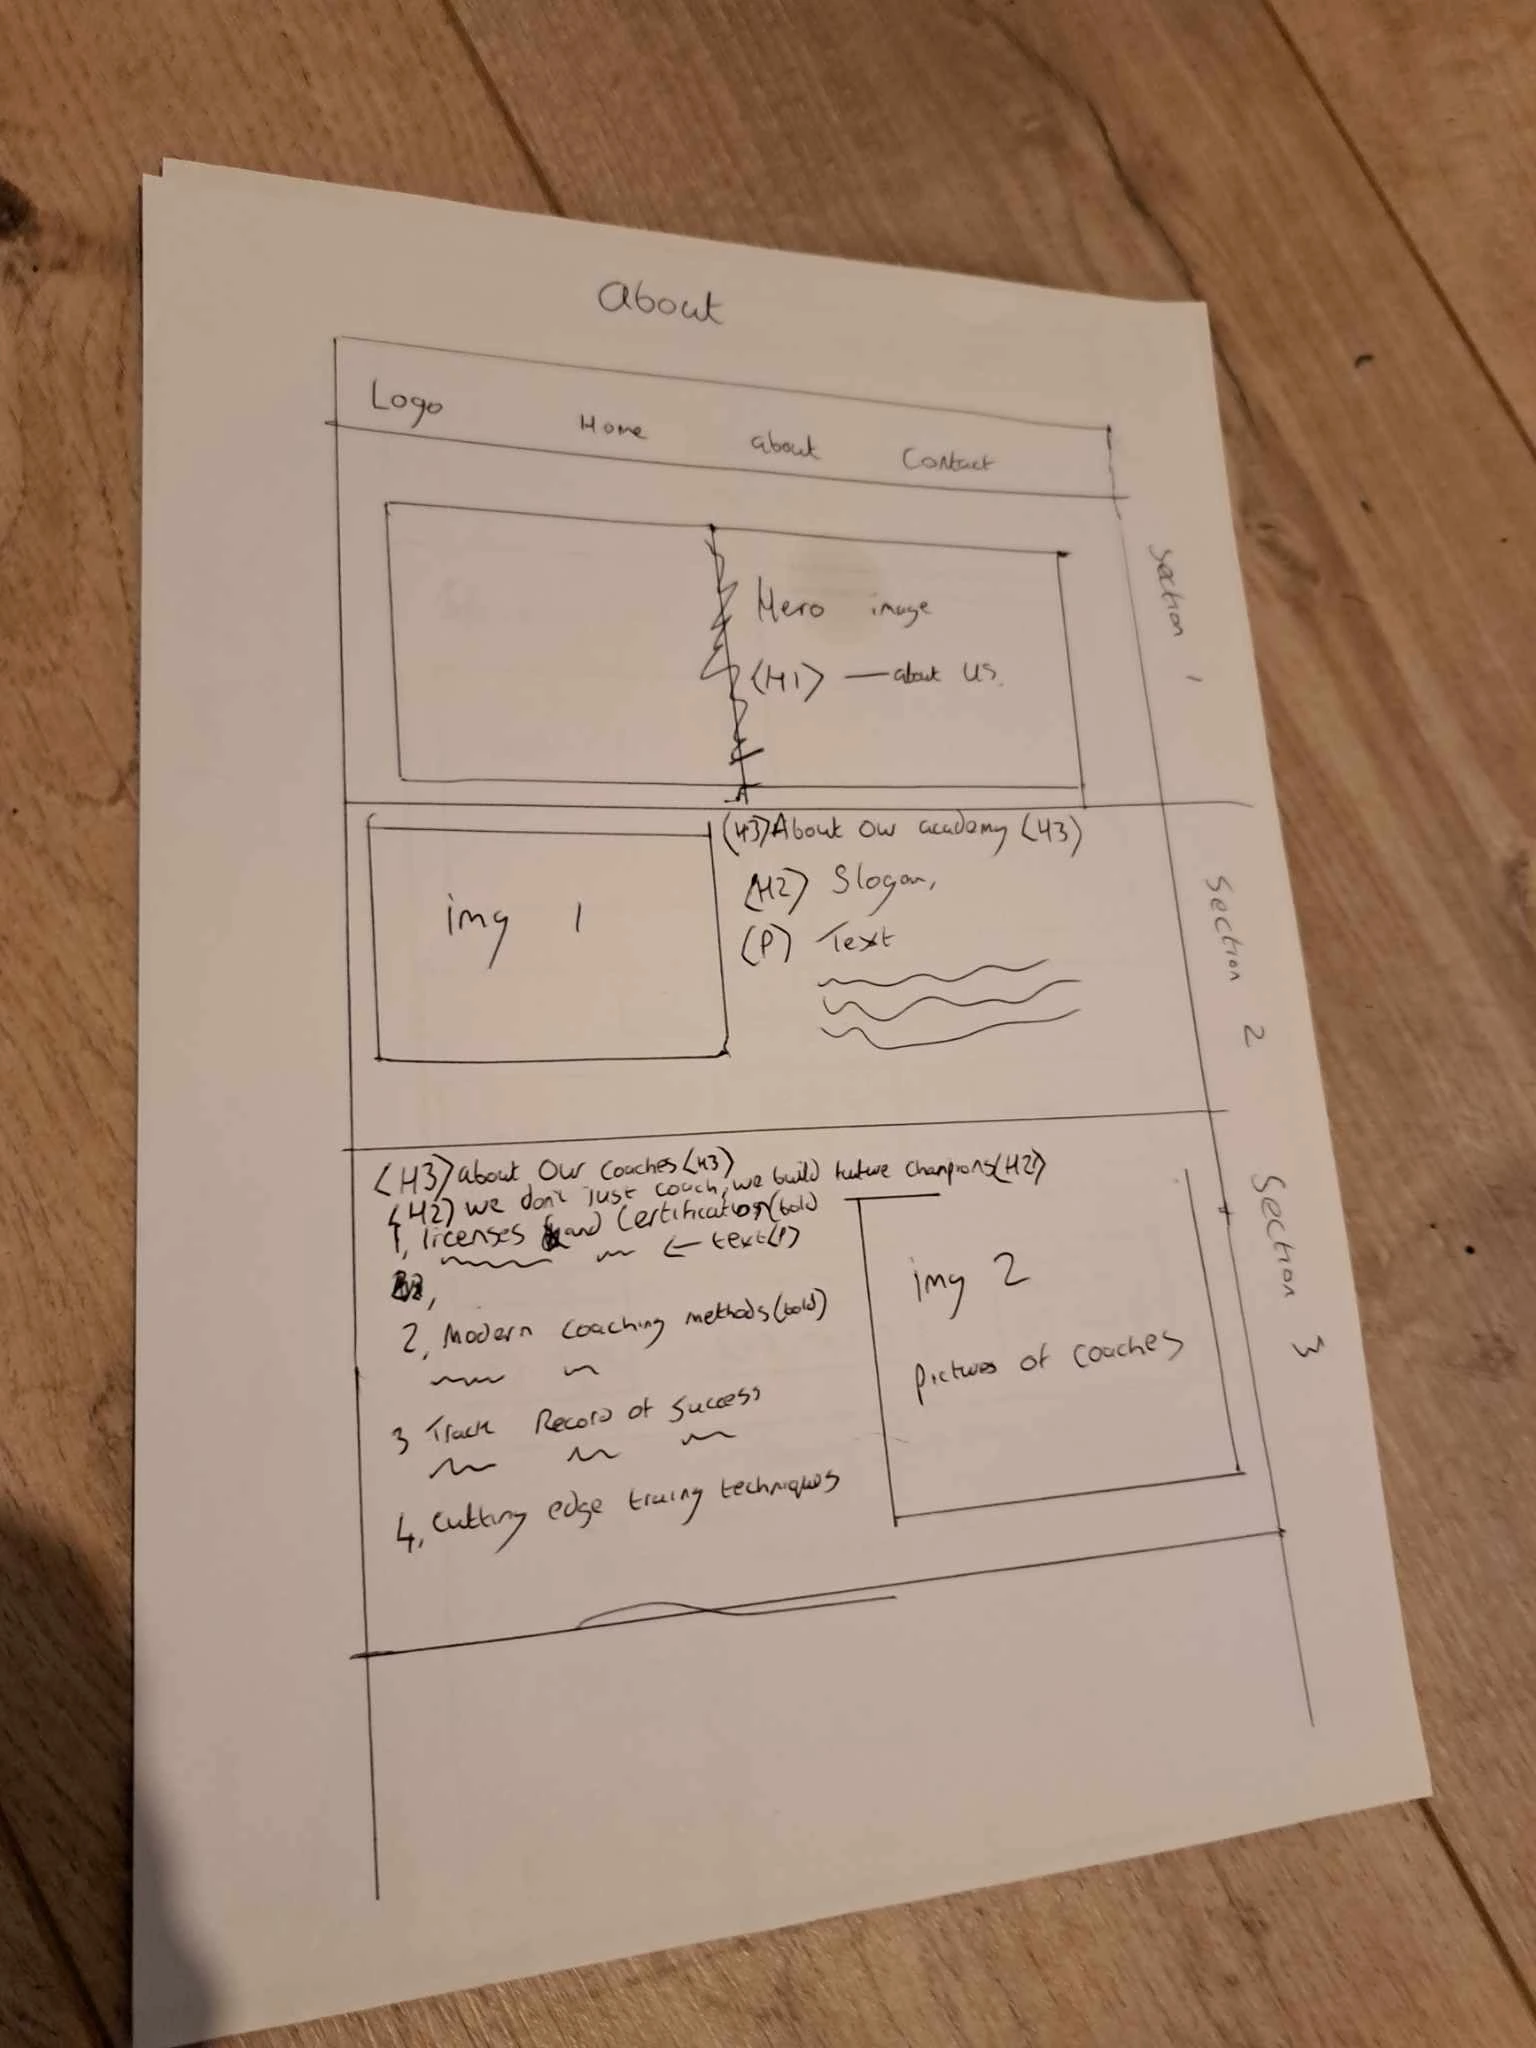 About
Logo Home about Contact
Section 1
Hero image
<H1> — about us.
(H3) About Our academy (H3)
img 1
(H2) Slogan,
(P) Text
Section 2
<H3> about Our coaches (H3)
(H2) we don't just coach, we build future champions (H2)
1, licenses and Certification (bold
← text (P)
2, Modern coaching methods (bold)
3 Track Record of Success
4, Cutting edge traing techniques
img 2
pictures of coaches
Section 3